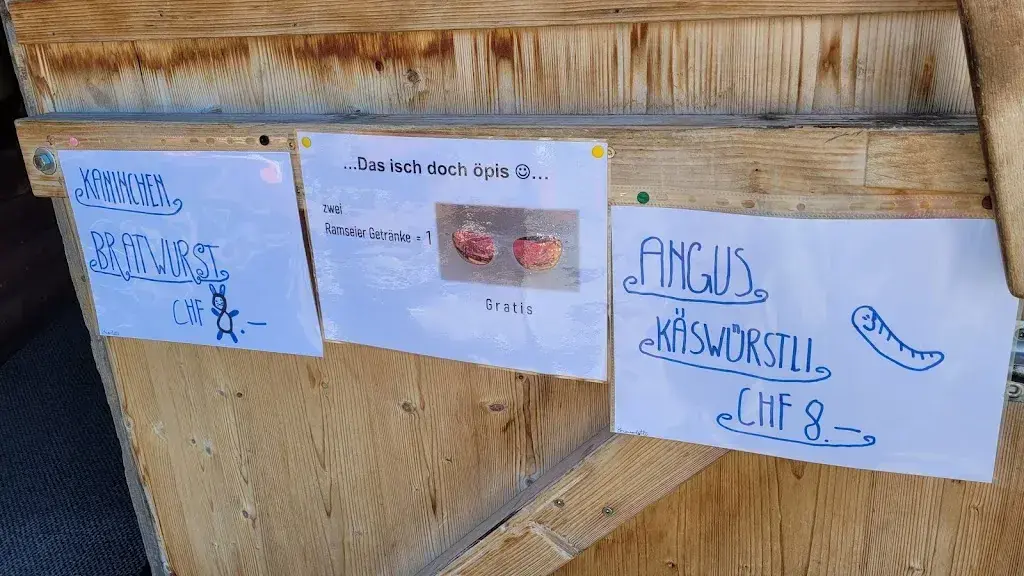 KANINCHEN
BRATWURST
CHF 8.–
...Das isch doch öpis ☺...
zwei
Ramseier Getränke = 1
Gratis
ANGUS
KÄSWÜRSTLI
CHF 8.–